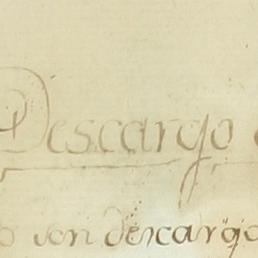 Descargo
son descargo